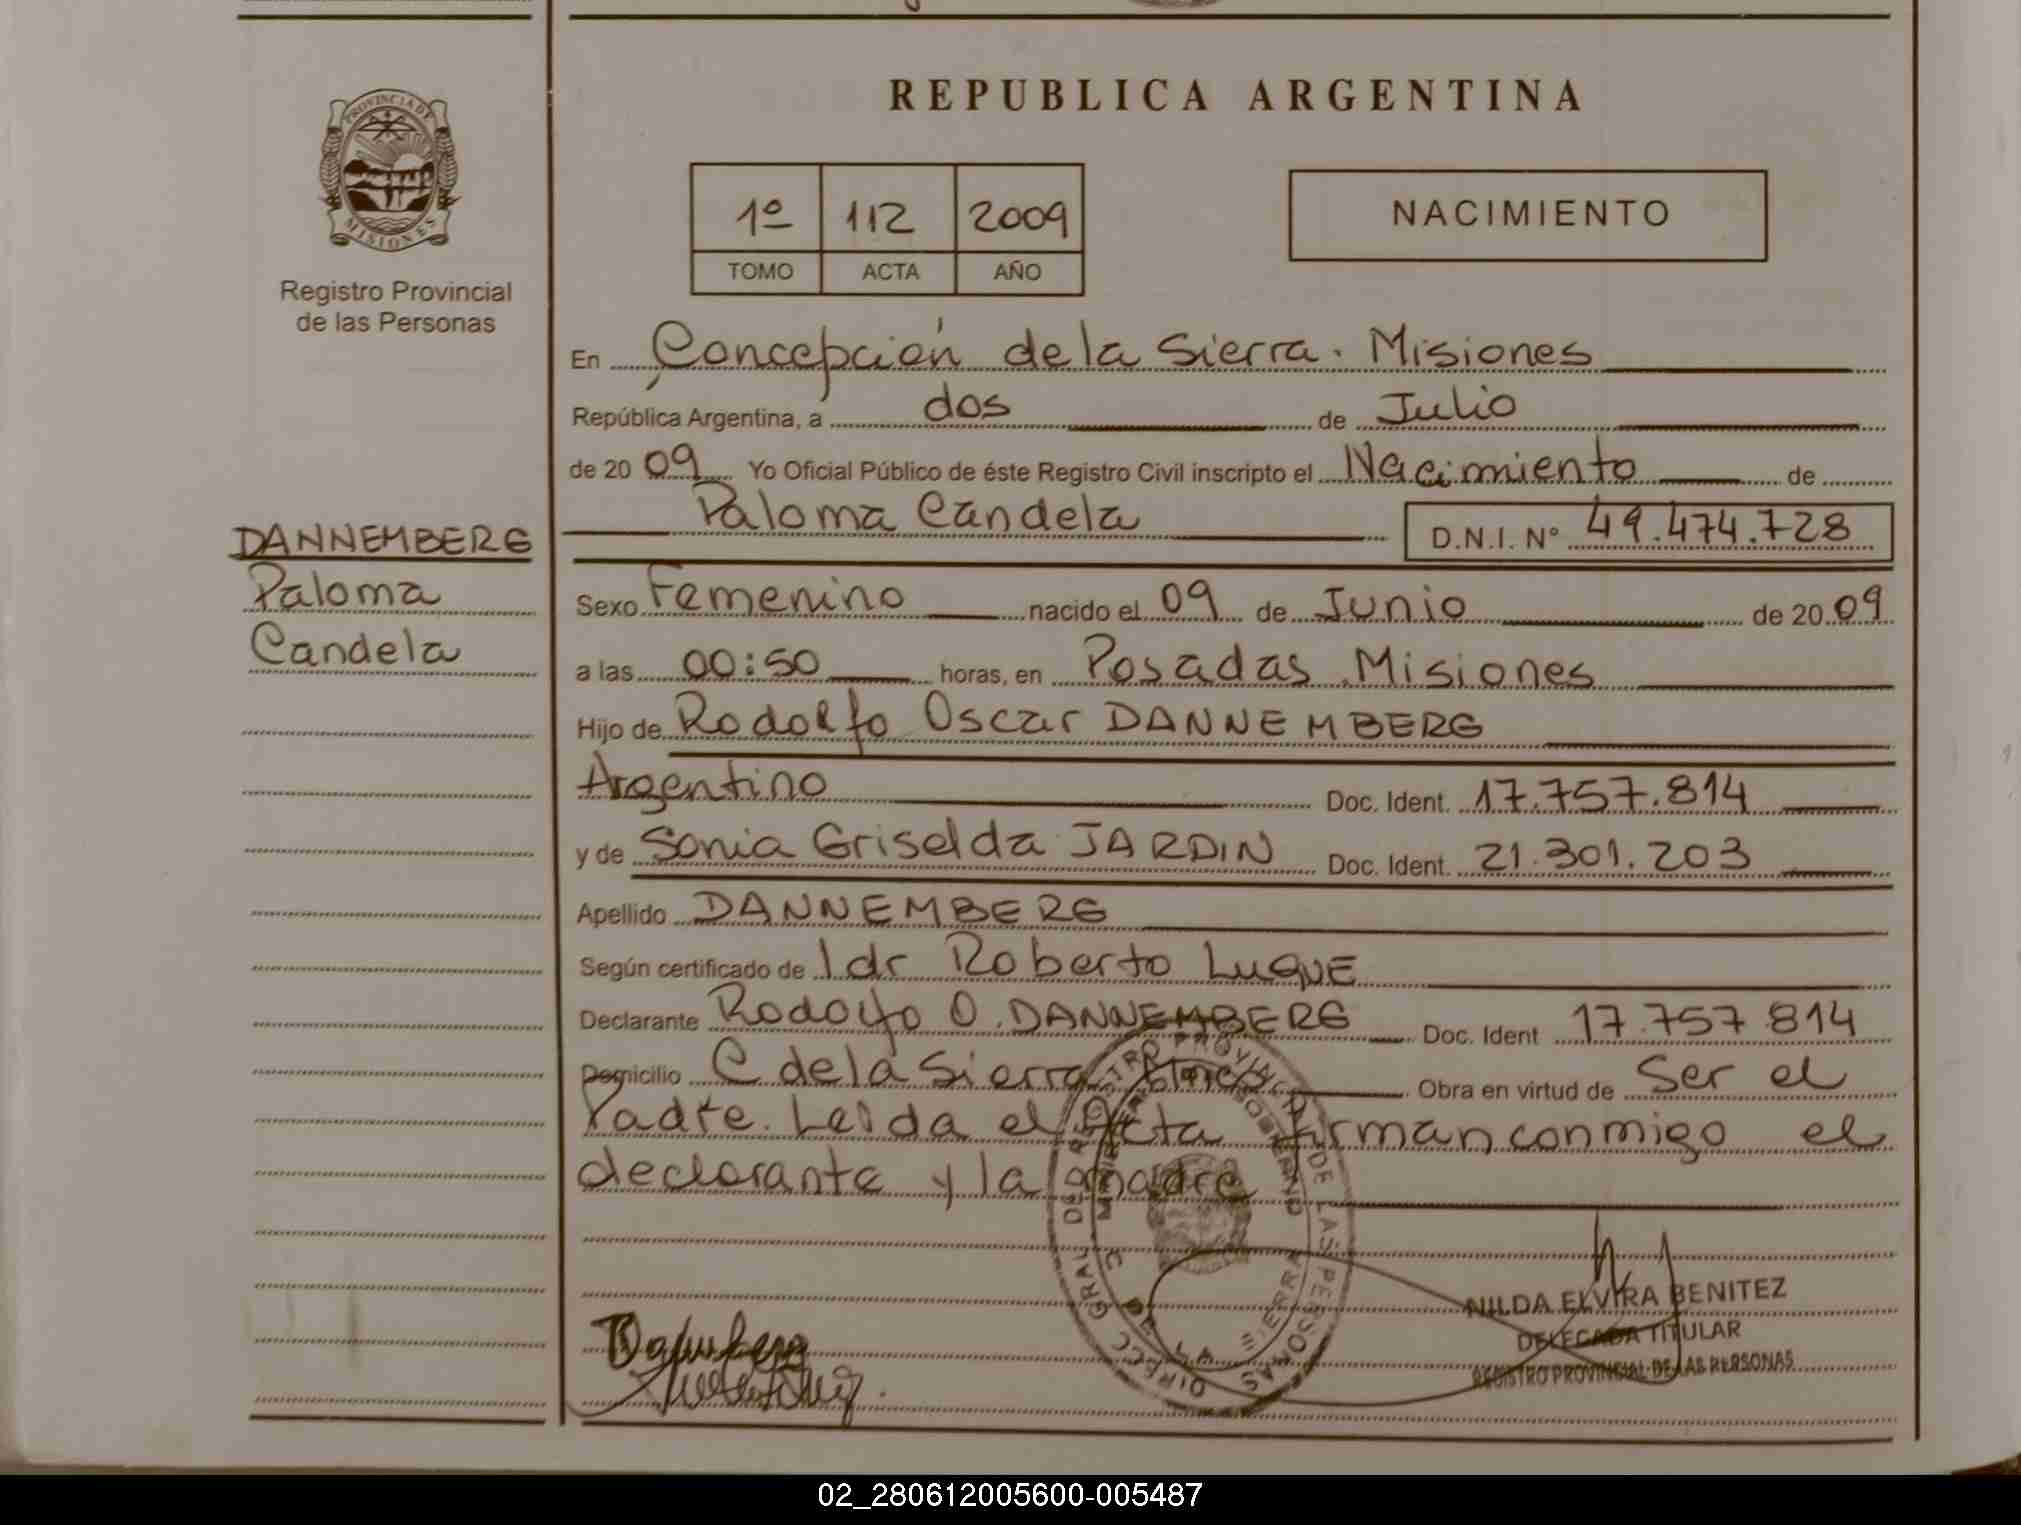 REPUBLICA ARGENTINA
PROVINCIA DE
MISIONES
Registro Provincial
de las Personas
1º 112 2009
TOMO ACTA AÑO
NACIMIENTO
En Concepción de la Sierra. Misiones
República Argentina, a dos de Julio
de 20 09 Yo Oficial Público de éste Registro Civil inscripto el Nacimiento de
Paloma Candela D.N.I. Nº 49.474.728
DANNEMBERG
Paloma
Candela
Sexo Femenino nacido el 09 de Junio de 20 09
a las 00:50 horas, en Posadas. Misiones
Hijo de Rodolfo Oscar DANNEMBERG
Argentino Doc. Ident. 17.757.814
y de Sonia Griselda JARDIN Doc. Ident. 21.301.203
Apellido DANNEMBERG
Según certificado de 1 dr Roberto LUQUE
Declarante Rodolfo O. DANNEMBERG Doc. Ident 17.757.814
Domicilio C de la Sierra Obra en virtud de Ser el
Padre. Leída el Acta firman conmigo el
declarante y la madre
NILDA ELVIRA BENITEZ
DELEGADA TITULAR
REGISTRO PROVINCIAL DE LAS PERSONAS
02_280612005600-005487